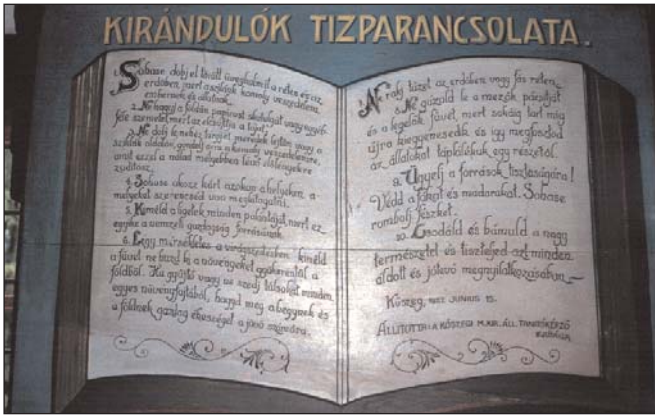 KIRÁNDULÓK TIZPARANCSOLATA.
1. Sohase dobj el törött üveget a rétes és az
erdőben, mert az komoly veszedelem
embernek és állatnak.
2. Ne hagyj a földön papirost skatulyát vagy egyéb
féle szemetet, mert az elcsúfítja a tájat.
3. Ne dobj le nehéz tárgyat meredek lejtőn vagy a
sziklák oldalán, gondolj arra a komoly veszedelemre,
amit ezzel a nálad mélyebben lévő élőlényekre
zudítasz.
4. Sohase okozz kárt azokon a helyeken, a
melyeket szerencséd van meglátogatni.
5. Kíméld a ligetek minden pázsitját, mert ez
egyike a nemzeti gazdagság forrásának.
6. Légy mérsékletes a virágszedésben, kíméld
a füvet, ne húzd ki a növényeket gyökerestől a
földből. Ha gyűjtő vagy ne szedj túlsokat minden
egyes növényfajtából, hagyd meg a hegynek és
a földnek gazdag ékességét a jövő számára.
Ne rakj tüzet az erdőben vagy fás réten.
Ne gázold le a mezők pázsitját
és a legelők füvét, mert sokáig tart míg
újra kiegyenesedik és így megfosztod
az állatokat táplálékuk egy részétől.
Ügyelj a források tisztaságára!
Védd a fákat és madarakat. Sohase
rombolj fészket.
10. Csodáld és bámuld a nagy
természetet és tiszteljed azt minden
áldott és jótevő megnyilatkozásában.
Kőszeg, JUNIUS 15.
ÁLLÍTOTTA A KŐSZEGI M. KIR. ÁLL. TANITÓKÉPZŐ